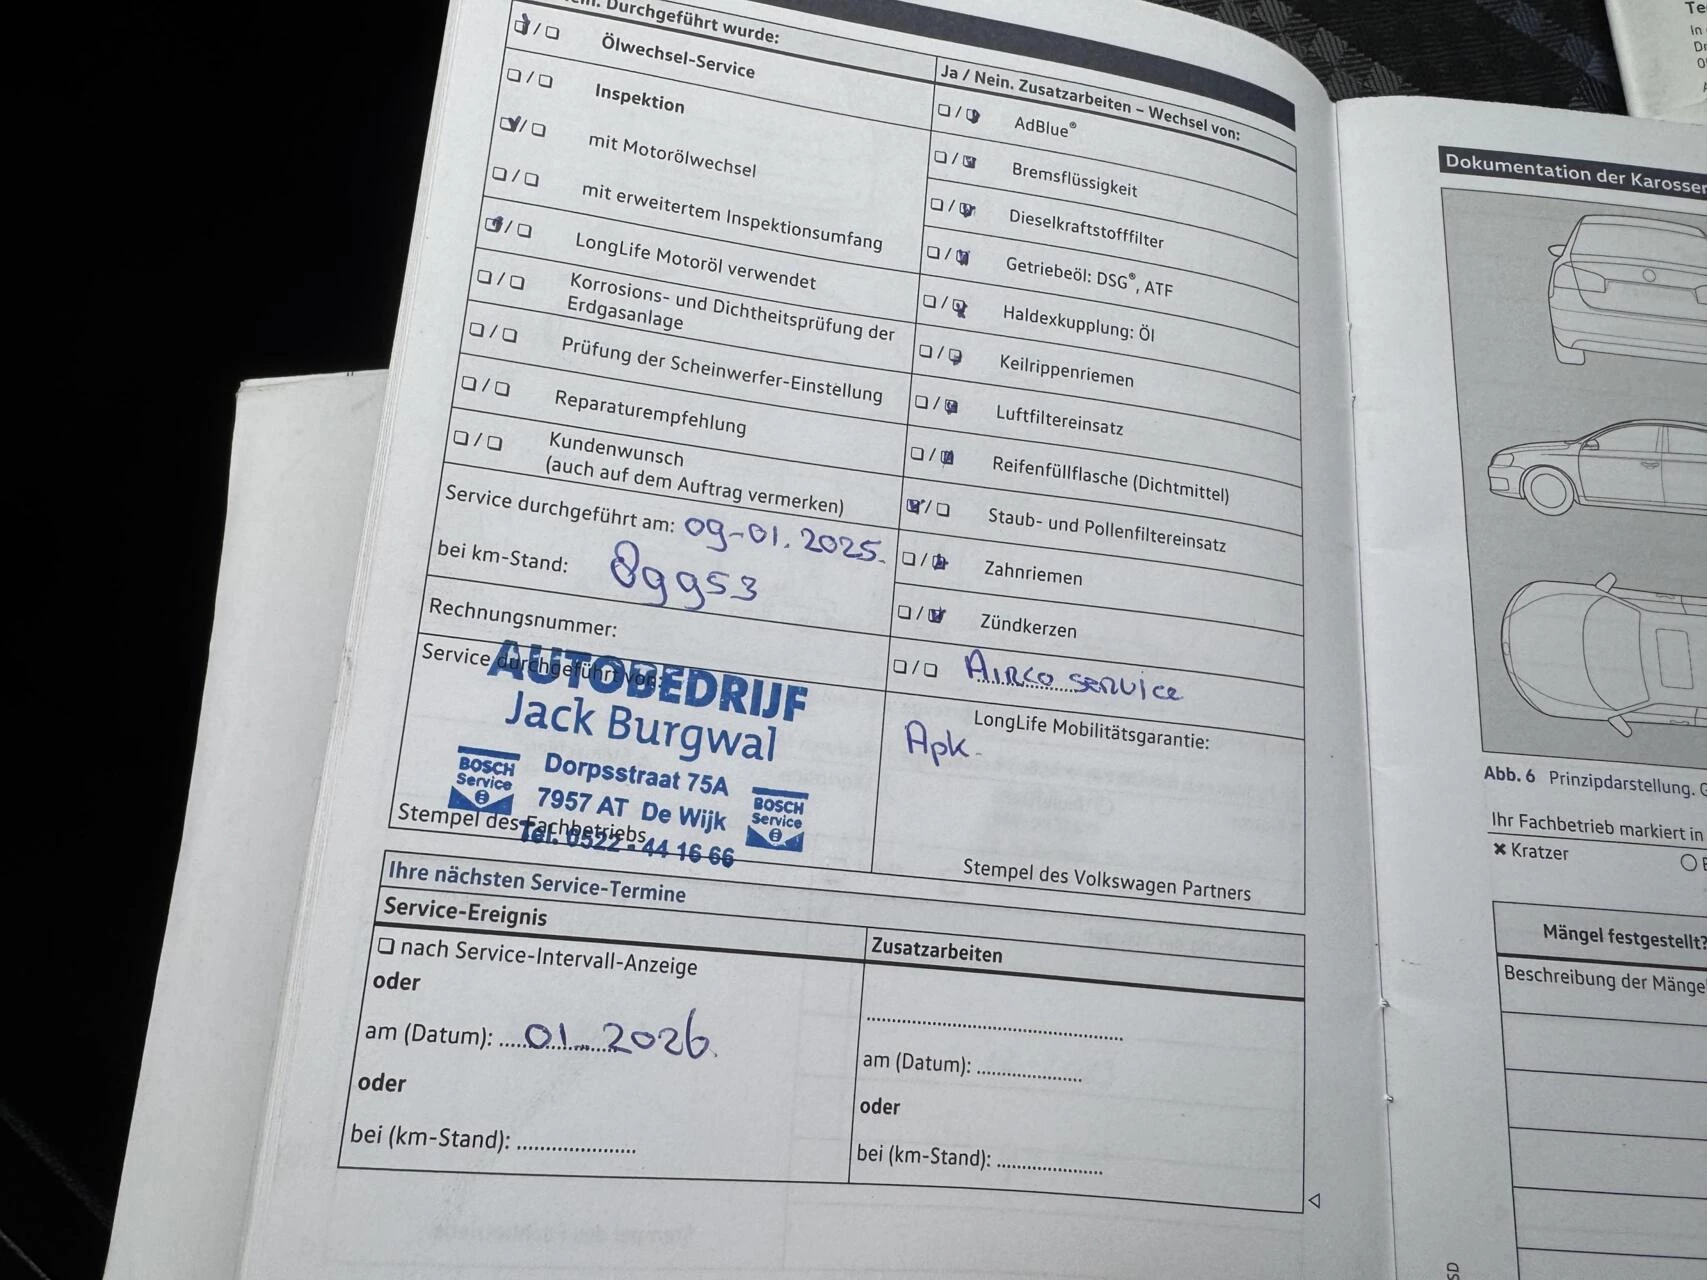 Durchgeführt wurde:
Ölwechsel-Service
Inspektion
mit Motorölwechsel
mit erweitertem Inspektionsumfang
LongLife Motoröl verwendet
Korrosions- und Dichtheitsprüfung der
Erdgasanlage
Prüfung der Scheinwerfer-Einstellung
Reparaturempfehlung
Kundenwunsch
(auch auf dem Auftrag vermerken)
Service durchgeführt am: 09-01.2025.
bei km-Stand: 89953
Rechnungsnummer:
Service durchgeführt von:
AUTOBEDRIJF
Jack Burgwal
BOSCH
Service
Dorpsstraat 75A
7957 AT De Wijk
BOSCH
Service
Tel. 0522 - 44 16 66
Stempel des Fachbetriebs
Ja / Nein. Zusatzarbeiten – Wechsel von:
AdBlue®
Bremsflüssigkeit
Dieselkraftstofffilter
Getriebeöl: DSG®, ATF
Haldexkupplung: Öl
Keilrippenriemen
Luftfiltereinsatz
Reifenfüllflasche (Dichtmittel)
Staub- und Pollenfiltereinsatz
Zahnriemen
Zündkerzen
Airco service
LongLife Mobilitätsgarantie:
Apk-
Stempel des Volkswagen Partners
Ihre nächsten Service-Termine
Service-Ereignis
nach Service-Intervall-Anzeige
oder
am (Datum): 01 2026.
oder
bei (km-Stand): ....................
Zusatzarbeiten
am (Datum): ....................
oder
bei (km-Stand): ....................
Dokumentation der
Abb. 6 Prinzipdarstellung.
Ihr Fachbetrieb markiert in
Kratzer
Mängel festgestellt?
Beschreibung der